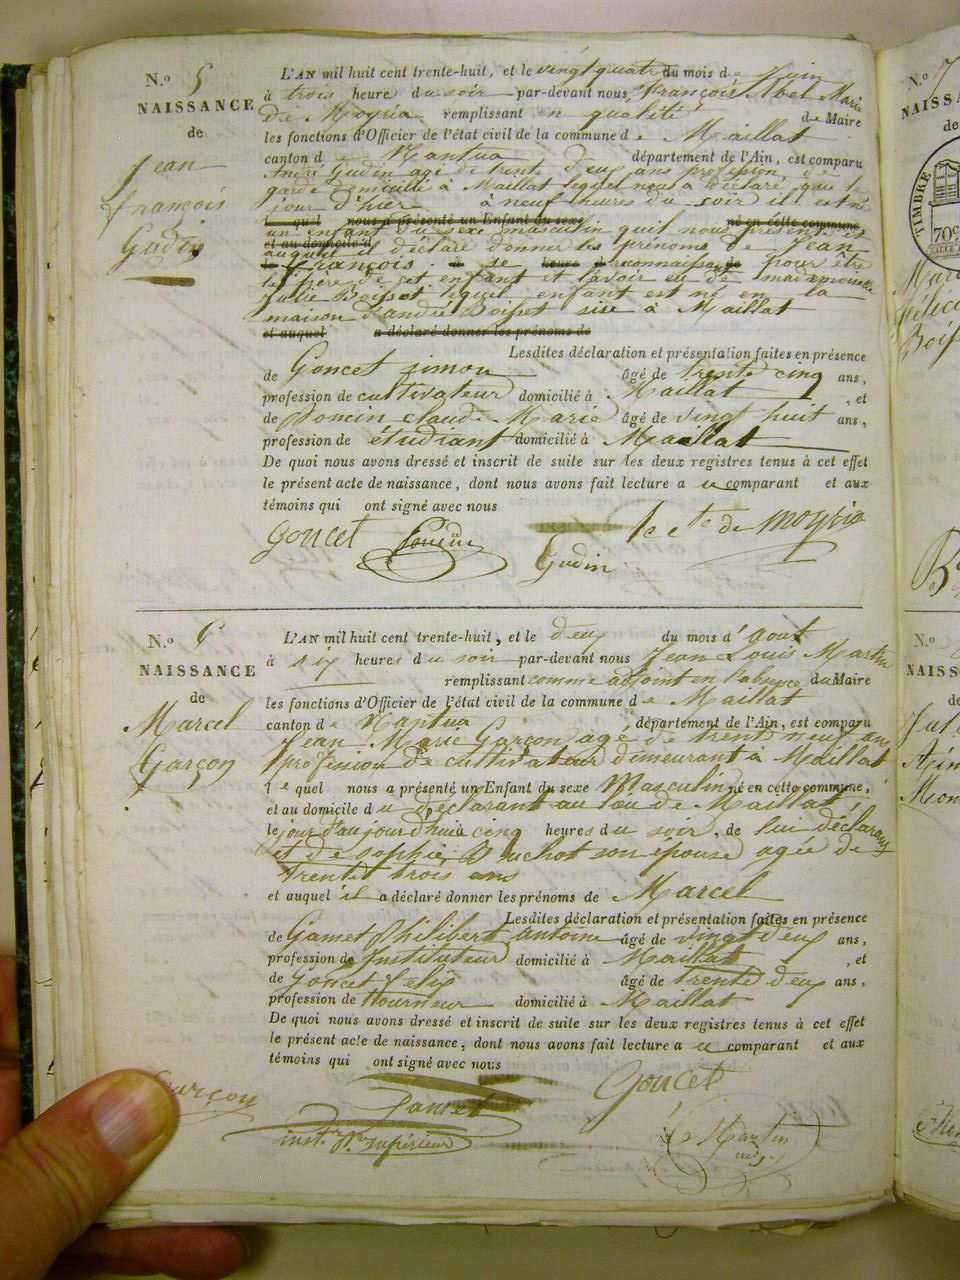 N.º 5
NAISSANCE
de
Jean
françois
Gudin
L'AN mil huit cent trente-huit, et le vingt quatre du mois de Juin
à trois heure du soir par-devant nous, François Abel Marie
de Moyria remplissant en qualité de Maire
les fonctions d'Officier de l'état civil de la commune de Maillat
canton de Nantua département de l'Ain, est comparu
André Gudin agé de trente deux ans profession de
garde domicilié à Maillat lequel nous a déclaré que le
jour d'hier à neuf heures du soir il est né
l quel nous a présenté un Enfant du sexe né en cette commune,
un enfant du sexe masculin qu'il nous présente et
et au domicile d
auquel il déclare donner les prénoms de Jean
François se reconnaissant pour être
le père de cet enfant et l'avoir eu de mademoiselle
Julie Boisset lequel enfant est né en la
maison d'andré Boisset sise à Maillat
et auquel a déclaré donner les prénoms de
Lesdites déclaration et présentation faites en présence
de Goncet Simon âgé de trente cinq ans,
profession de cultivateur domicilié à Maillat, et
de Poncin Claude Marie âgé de vingt huit ans,
profession de étudiant domicilié à Maillat
De quoi nous avons dressé et inscrit de suite sur les deux registres tenus à cet effet
le présent acte de naissance, dont nous avons fait lecture a u comparant et aux
témoins qui ont signé avec nous
goncet Poncin Gudin le Cte de Moyria
N.º 6
NAISSANCE
de
Marcel
Garçon
L'AN mil huit cent trente-huit, et le deux du mois d'Aout
à six heures du soir par-devant nous Jean Louis Martin
remplissant comme adjoint en l'absence du Maire
les fonctions d'Officier de l'état civil de la commune de Maillat
canton de Nantua département de l'Ain, est comparu
Jean Marie Garçon agé de trente neuf ans
profession de cultivateur demeurant à Maillat
lequel nous a présenté un Enfant du sexe Masculin né en cette commune,
et au domicile du déclarant au lieu de Maillat,
le jour d'aujourd'hui à cinq heures du soir, de lui déclarant
et de Sophie Buchot son épouse agée de
trente trois ans
et auquel il a déclaré donner les prénoms de Marcel
Lesdites déclaration et présentation faites en présence
de Gamet Philibert Antoine âgé de vingt deux ans,
profession de Instituteur domicilié à Maillat, et
de Goncet Felix âgé de trente deux ans,
profession de tourneur domicilié à Maillat
De quoi nous avons dressé et inscrit de suite sur les deux registres tenus à cet effet
le présent acte de naissance, dont nous avons fait lecture a u comparant et aux
témoins qui ont signé avec nous
Garçon Gamet Goncet
inst. Pre supérieur Ls Martin
N.º 7
NAISSA
de
TIMBRE
70c
N.º
NAISS
de